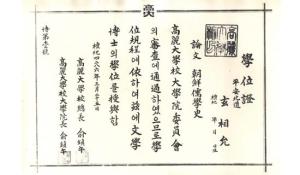 學位證
平安北道
玄相允
檀紀 年 月 日生
論文 朝鮮儒學史
高麗大學校大學院委員會
의審査에通過하였으므로學
位規程에依하여玆에文學
博士의學位를授與함
檀紀四二八六年三月二十五日
高麗大學校總長
高麗大學校大學院長
博第壹號